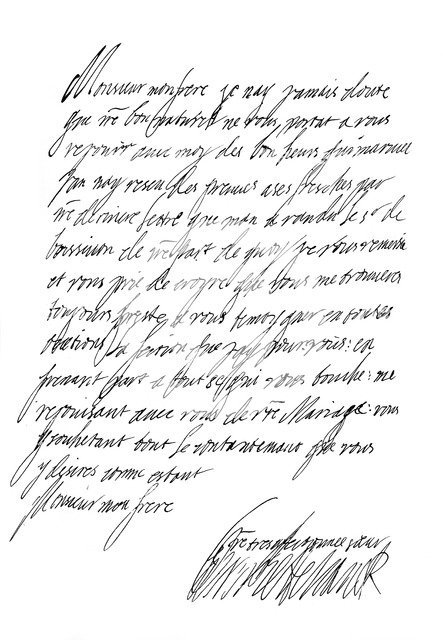 Monsieur mon frere je nay jamais doute
que vre bon naturel ne vous portat a vous
rejouir avec moy des bon heurs qui marive
jan nay reseu des preuves ases fresches par
vre derniere letre que man a randu le sr de
de vre part de quoy je vous remersie
et vous prie de croyre que vous me trouveres
toujours preste a vous temoygner en toutes
ocations la fection que jay pour vous: en
prenant part a tout se qui vous touche: me
rejouisant avec vous de vre Mariage: vous
souhetant tout le contantement que vous
y desires comme estant
Monsieur mon frere
vre tres afectionnee seur